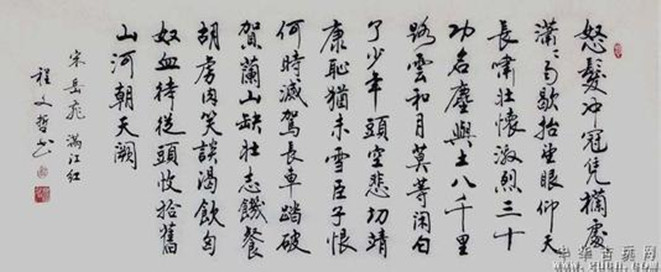 怒髮冲冠凭欄處
瀟〻雨歇抬望眼仰天
長嘯壯懷激烈三十
功名塵與土八千里
路雲和月莫等闲白
了少年頭空悲切靖
康恥猶未雪臣子恨
何時滅駕長車踏破
賀蘭山缺壯志饑餐
胡虏肉笑談渴飲匈
奴血待從頭收拾舊
山河朝天闕
宋岳飛 滿江红
程文哲书
中华古玩网